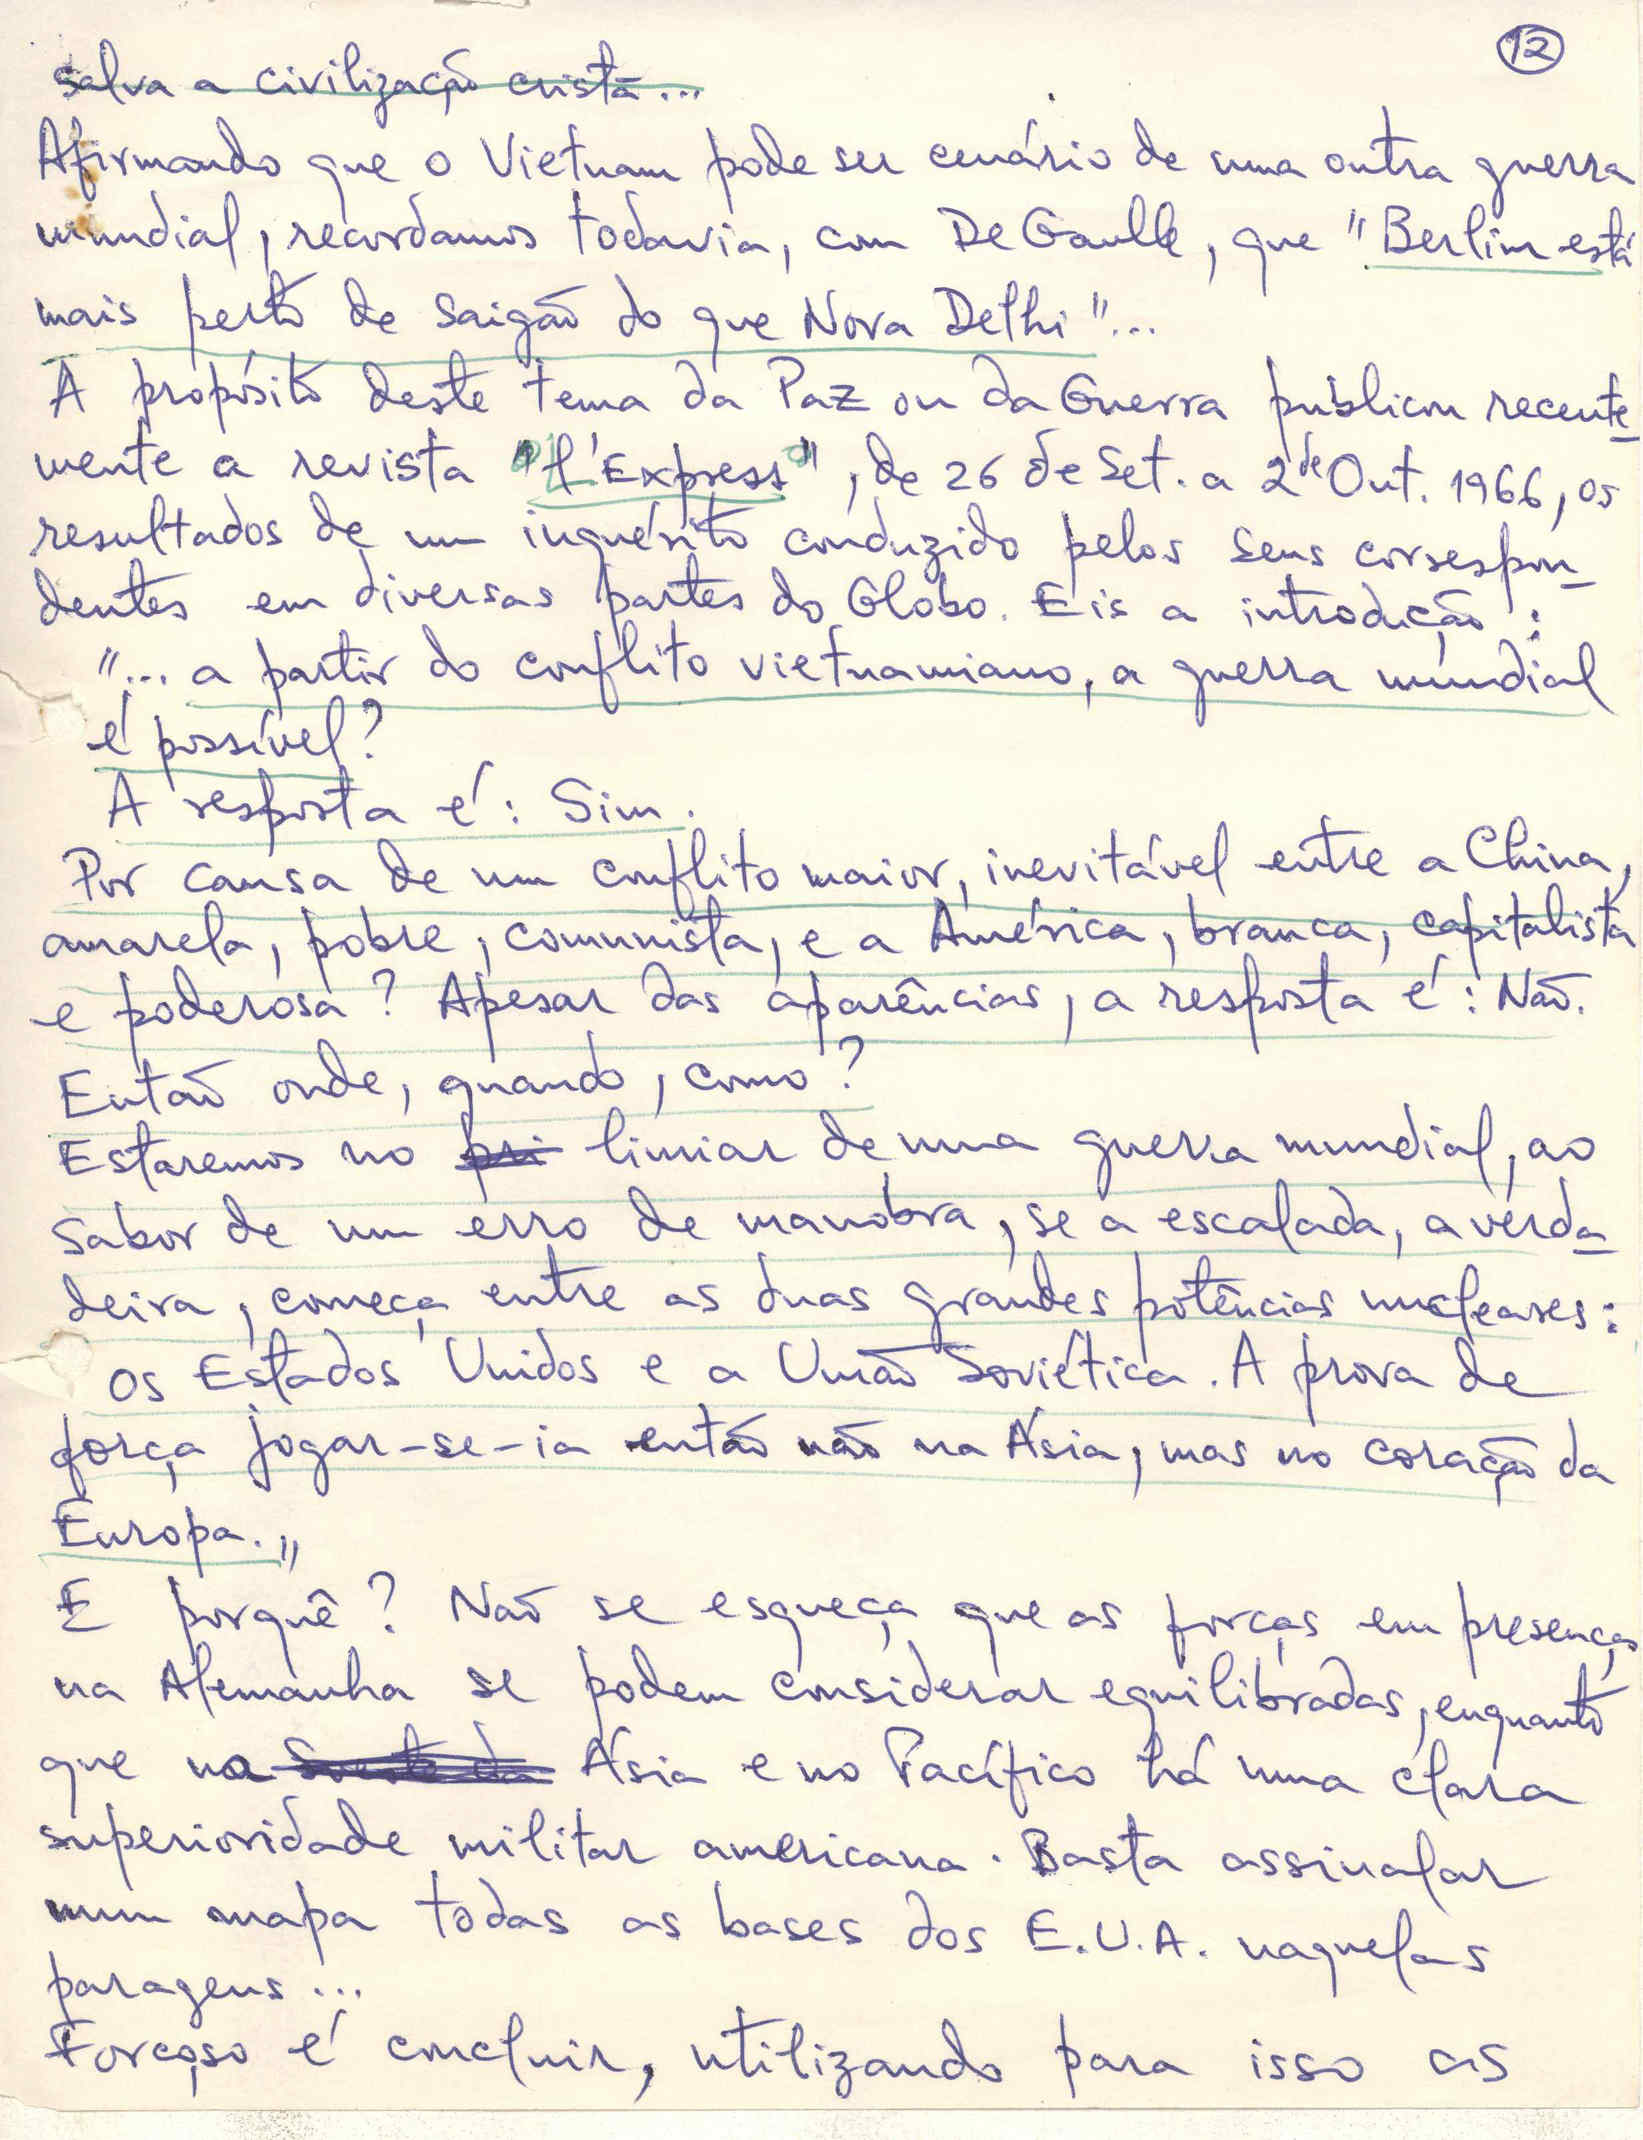 12
salva a civilização cristã...
Afirmando que o Vietnam pode ser cenário de uma outra guerra
mundial, recordamos todavia, com De Gaulle, que "Berlim está
mais perto de Saigão do que Nova Delhi"...
A propósito deste tema da Paz ou da Guerra publicou recente-
mente a revista "L'Express", de 26 de Set. a 2 de Out. 1966, os
resultados de um inquérito conduzido pelos seus correspon-
dentes em diversas partes do Globo. Eis a introdução:
"... a partir do conflito vietnamiano, a guerra mundial
é possível?
A resposta é: Sim.
Por causa de um conflito maior, inevitável entre a China,
amarela, pobre, comunista, e a América, branca, capitalista
e poderosa? Apesar das aparências, a resposta é: Não.
Então onde, quando, como?
Estaremos no pri limiar de uma guerra mundial, ao
sabor de um erro de manobra, se a escalada, a verda-
deira, começa entre as duas grandes potências nucleares:
os Estados Unidos e a União Soviética. A prova de
força jogar-se-ia então não na Ásia, mas no coração da
Europa."
E porquê? Não se esqueça que as forças em presença
na Alemanha se podem considerar equilibradas, enquanto
que na Ásia e no Pacífico há uma clara
superioridade militar americana. Basta assinalar
num mapa todas as bases dos E.U.A. naquelas
paragens...
Forçoso é concluir, utilizando para isso as